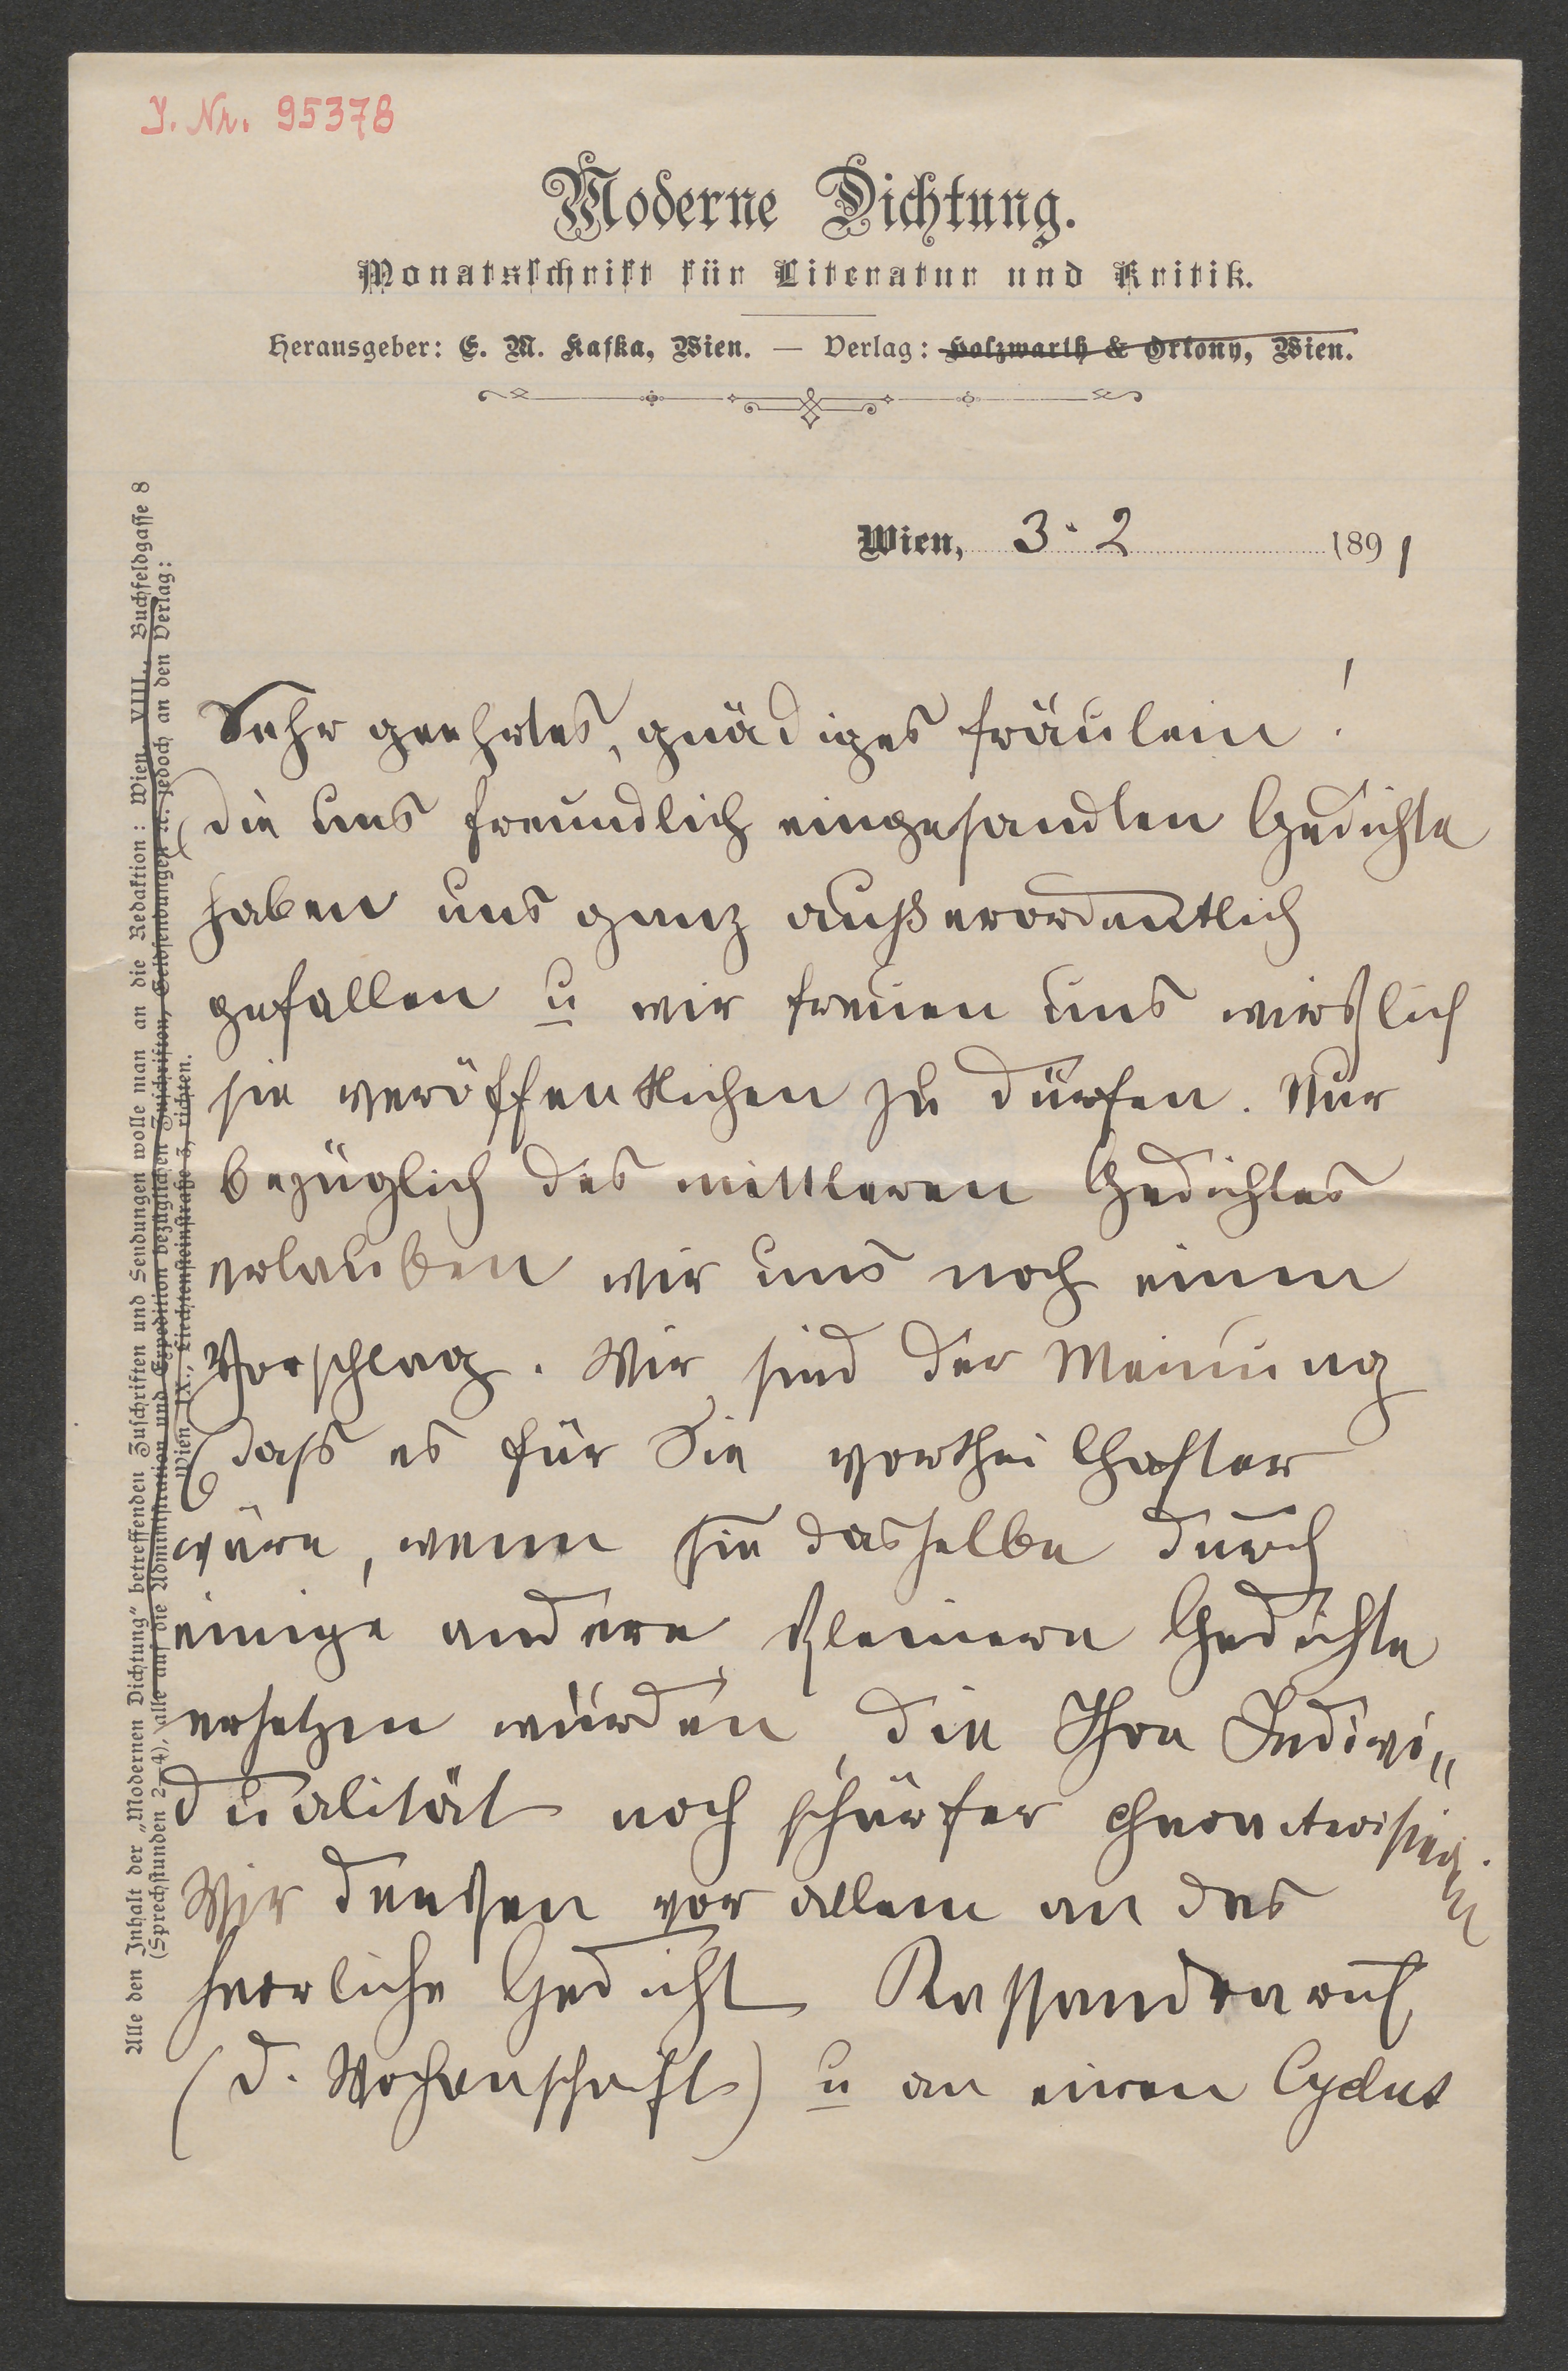 J. Nr. 95378
Moderne Dichtung.
Monatsschrift für Literatur und Kritik.
Herausgeber: E. M. Kafka, Wien. — Verlag: Holzwarth & Ortony, Wien.
Wien, 3. 2 1891
Alle den Inhalt der „Modernen Dichtung" betreffenden Zuschriften und Sendungen wolle man an die Redaktion: Wien, VIII., Buchfeldgasse 8
(Sprechstunden 2—4), alle auf die Administration und Expedition bezüglichen Zuschriften, Geldsendungen &c. jedoch an den Verlag:
Wien, IX., richten.
Sehr geehrtes, gnädiges Fräulein!
Die uns freundlich eingesandten Gedichte
haben uns ganz außerordentlich
gefallen u wir freuen uns wirklich
sie veröffentlichen zu dürfen. Nur
bezüglich des mittleren Gedichtes
erlauben wir uns noch einen
Vorschlag. Wir sind der Meinung
daß es für Sie vortheilhafter
wäre, wenn Sie dasselbe durch
einige andere kleinere Gedichte
ersetzen würden, die Ihre Indivi„
dualität noch schärfer charakterisiren.
Wir denken vor allem an das
herrliche Gedicht Kassandraruf
(d. Wochenschrift) u an einen Cyclus